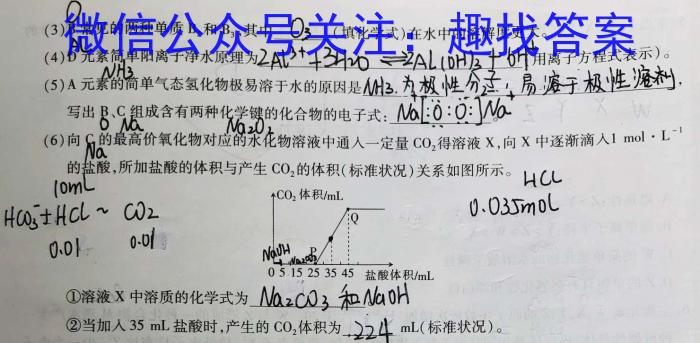 微信公众号关注：趣找答案
(3)
O₃ (填化学式)在水中
Al
(4)D元素简单阳离子净水原理为 2Al³⁺+3H₂O ⇌ 2Al(OH)₃+6H⁺ 用离子方程式表示)。
NH₃
(5)A元素的简单气态氢化物极易溶于水的原因是 NH₃为极性分子,易溶于极性溶剂.
写出B、C组成含有两种化学键的化合物的电子式: Na⁺[:Ö:Ö:]²⁻Na⁺
O Na Na₂O₂
(6)向C的最高价氧化物对应的水化物溶液中通入一定量CO₂得溶液X,向X中逐渐滴入1 mol·L⁻¹
Na
的盐酸,所加盐酸的体积与产生CO₂的体积(标准状况)关系如图所示。
10mL
HCO₃⁻+HCl ~ CO₂
0.01 0.01
HCl
0.035mol
CO₂体积/mL
Q
P
NaOH Na₂CO₃
0 5 15 25 35 45 盐酸体积/mL
①溶液X中溶质的化学式为 Na₂CO₃ 和 NaOH
②当加入35 mL盐酸时,产生的CO₂体积为 224 mL(标准状况)。